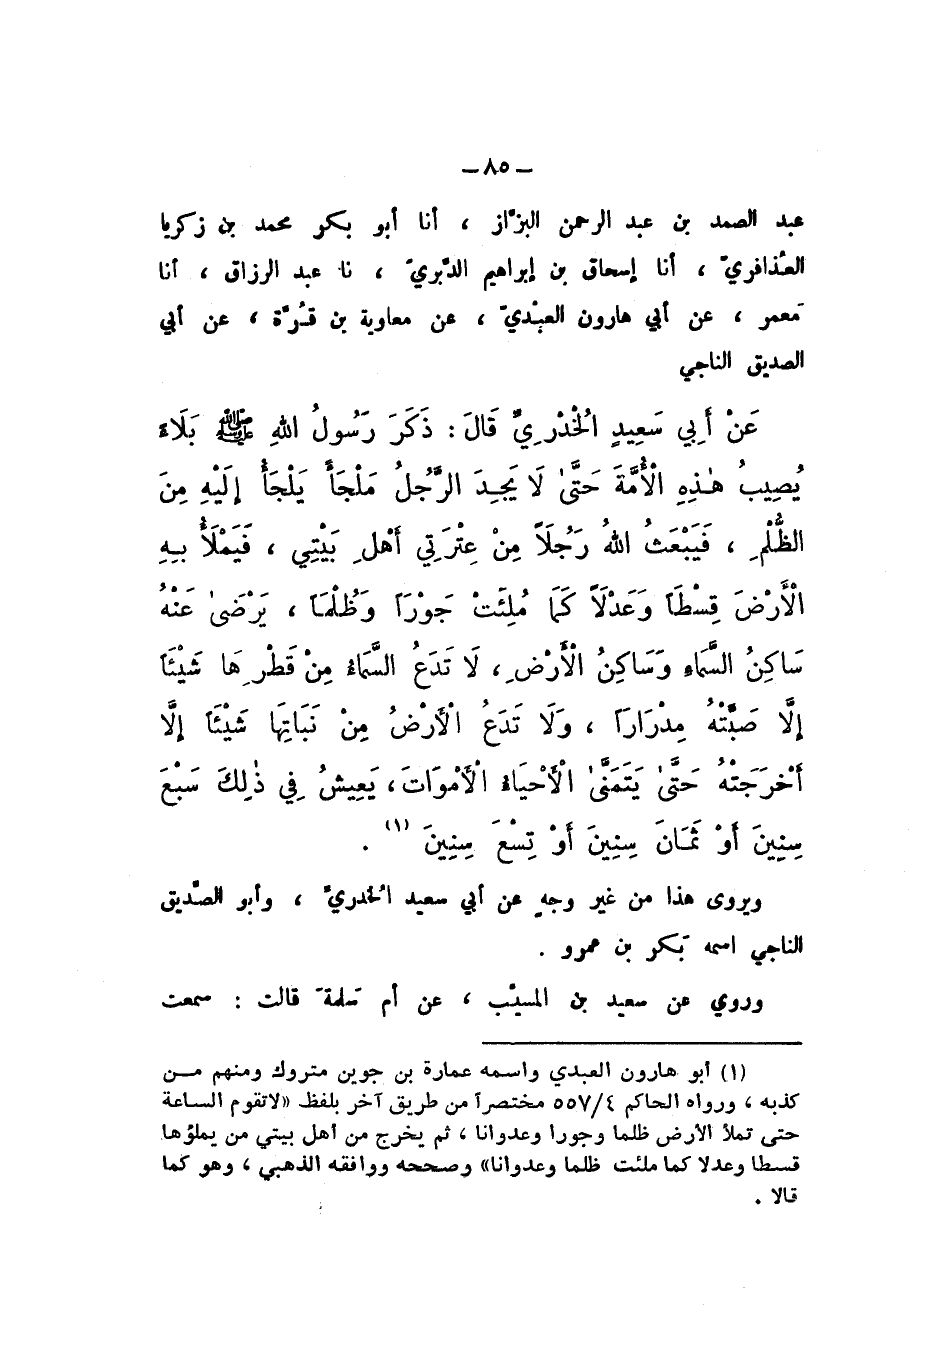 ـ ٨٥ ـ
عبد الصمد بن عبد الرحمن البزّاز ، أنا أبو بكر محمد بن زكريا
العُذافريّ ، أنا إسحاق بن إبراهيم الدَّبريّ ، نا عبد الرزاق ، أنا
مَعمر ، عن أبي هارون العبْديّ ، عن معاوية بن قُرَّة ، عن أبي
الصديق الناجي
عَنْ أَبِي سَعِيدٍ الْخُدْرِيِّ قَالَ : ذَكَرَ رَسُولُ اللهِ ﷺ بَلَاءً
يُصِيبُ هٰذِهِ الْأُمَّةَ حَتَّىٰ لَا يَجِدَ الرَّجُلُ مَلْجَأً يَلْجَأُ إِلَيْهِ مِنَ
الظُّلْمِ ، فَيَبْعَثُ اللهُ رَجُلاً مِنْ عِتْرَتِي أَهْلِ بَيْتِي ، فَيَمْلَأُ بِهِ
الْأَرْضَ قِسْطَاً وَعَدْلَاً كَمَا مُلِئَتْ جَوْرَاً وَظُلْمَاً ، يَرْضَىٰ عَنْهُ
سَاكِنُ السَّمَاءِ وَسَاكِنُ الْأَرْضِ ، لَا تَدَعُ السَّمَاءُ مِنْ قَطْرِهَا شَيْئَاً
إِلَّا صَبَّتْهُ مِدْرَارَاً ، وَلَا تَدَعُ الْأَرْضُ مِنْ نَبَاتِهَا شَيْئَاً إِلَّا
أَخْرَجَتْهُ حَتَّىٰ يَتَمَنَّىٰ الْأَحْيَاءُ الْأَمْوَاتَ ، يَعِيشُ فِي ذٰلِكَ سَبْعَ
سِنِينَ أَوْ ثَمَانَ سِنِينَ أَوْ تِسْعَ سِنِينَ (١) .
ويروى هذا من غير وجهٍ عن أبي سعيد الْخدريّ ، وأبو الصّديق
الناجي اسمه بَكر بن عمرو .
وروي عن سعيد بن المسيّب ، عن أم سَلمة قالت : سمعت
(١) أبو هارون العبدي واسمه عمارة بن جوين متروك ومنهم مـن
كذبه ، ورواه الحاكم ٥٥٧/٤ مختصرآ من طريق آخر بلفظ «لاتقوم الساعة
حتى تملأ الأرض ظلما وجورا وعدوانا ، ثم يخرج من أهل بيتي من يملؤها
قسطا وعدلا كما ملئت ظلما وعدوانا» وصححه ووافقه الذهبي ، وهو كما
قالا .